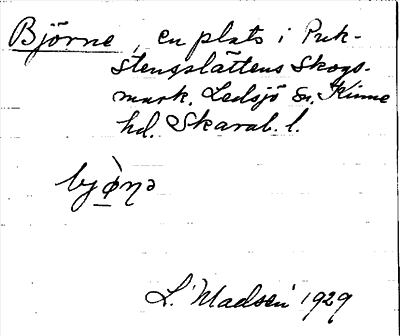 Björne, en plats i Puk-
stensplättens Skogs-
mark. Ledsjö sn. Kinne
hd. Skarab. l.
bjø̀ṇə
L. Madsén 1929